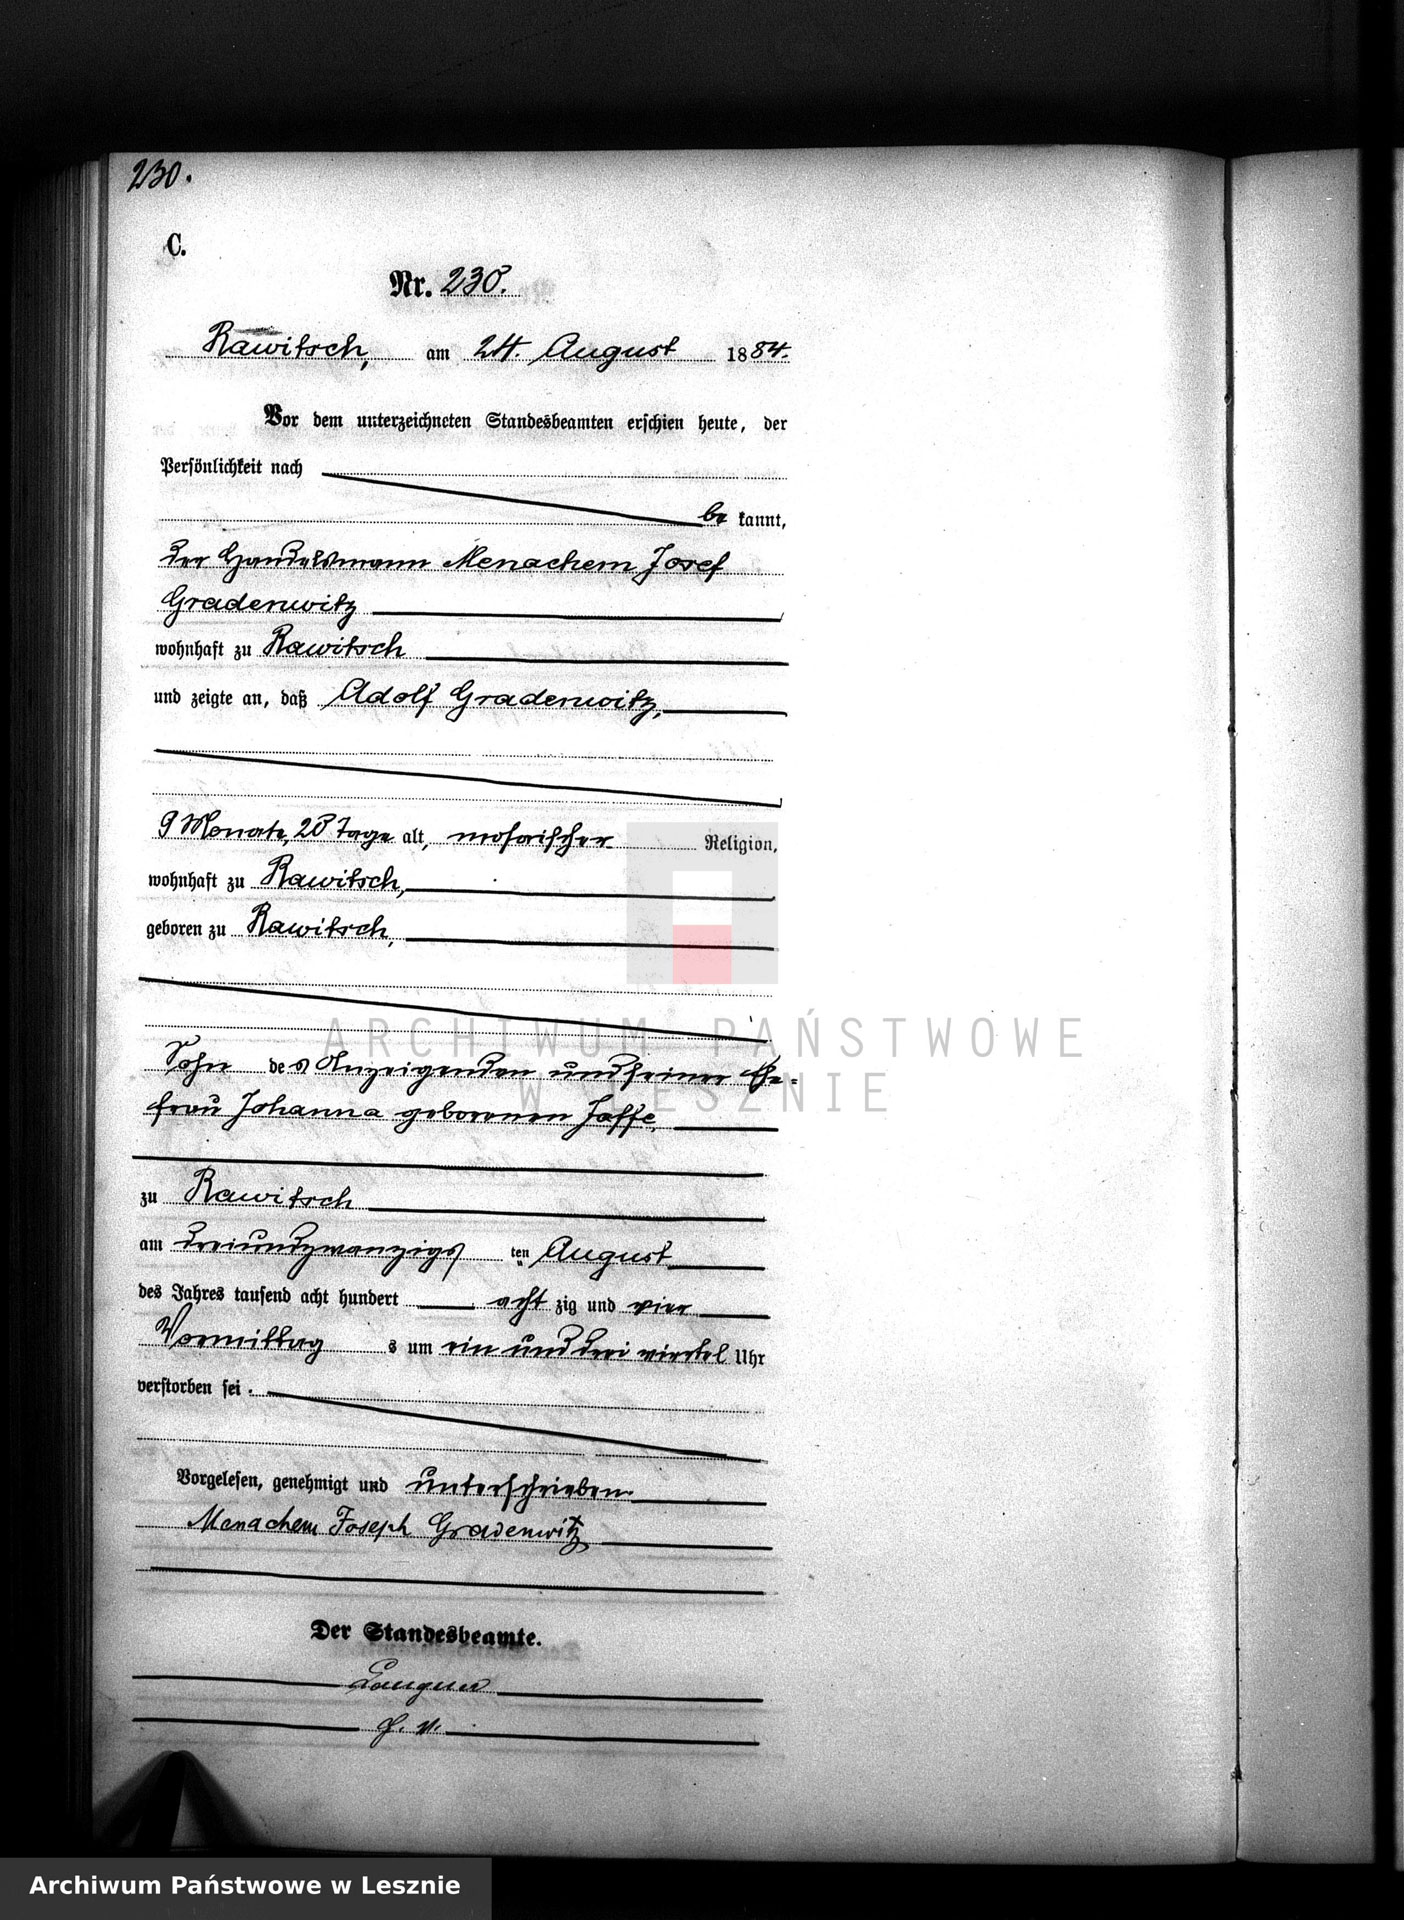 230.
C.
Nr. 230.
Rawitsch, am 24. August 1884.
Vor dem unterzeichneten Standesbeamten erschien heute, der
Persönlichkeit nach
be kannt,
der Handelsmann Menachem Josef
Gradenwitz
wohnhaft zu Rawitsch
und zeigte an, daß Adolf Gradenwitz,
9 Monate, 28 Tage alt, mosaischer Religion,
wohnhaft zu Rawitsch,
geboren zu Rawitsch,
ARCHIWUM PAŃSTWOWE
Sohn des Anzeigenden und seiner Ehe-
W LESZNIE
frau Johanna geborenen Jaffe,
zu Rawitsch
am dreiundzwanzigs ten August
des Jahres tausend acht hundert acht zig und vier
Vormittag s um ein und drei viertel Uhr
verstorben sei.
Vorgelesen, genehmigt und unterschrieben
Menachem Joseph Gradenwitz
Der Standesbeamte.
Archiwum Państwowe w Lesznie